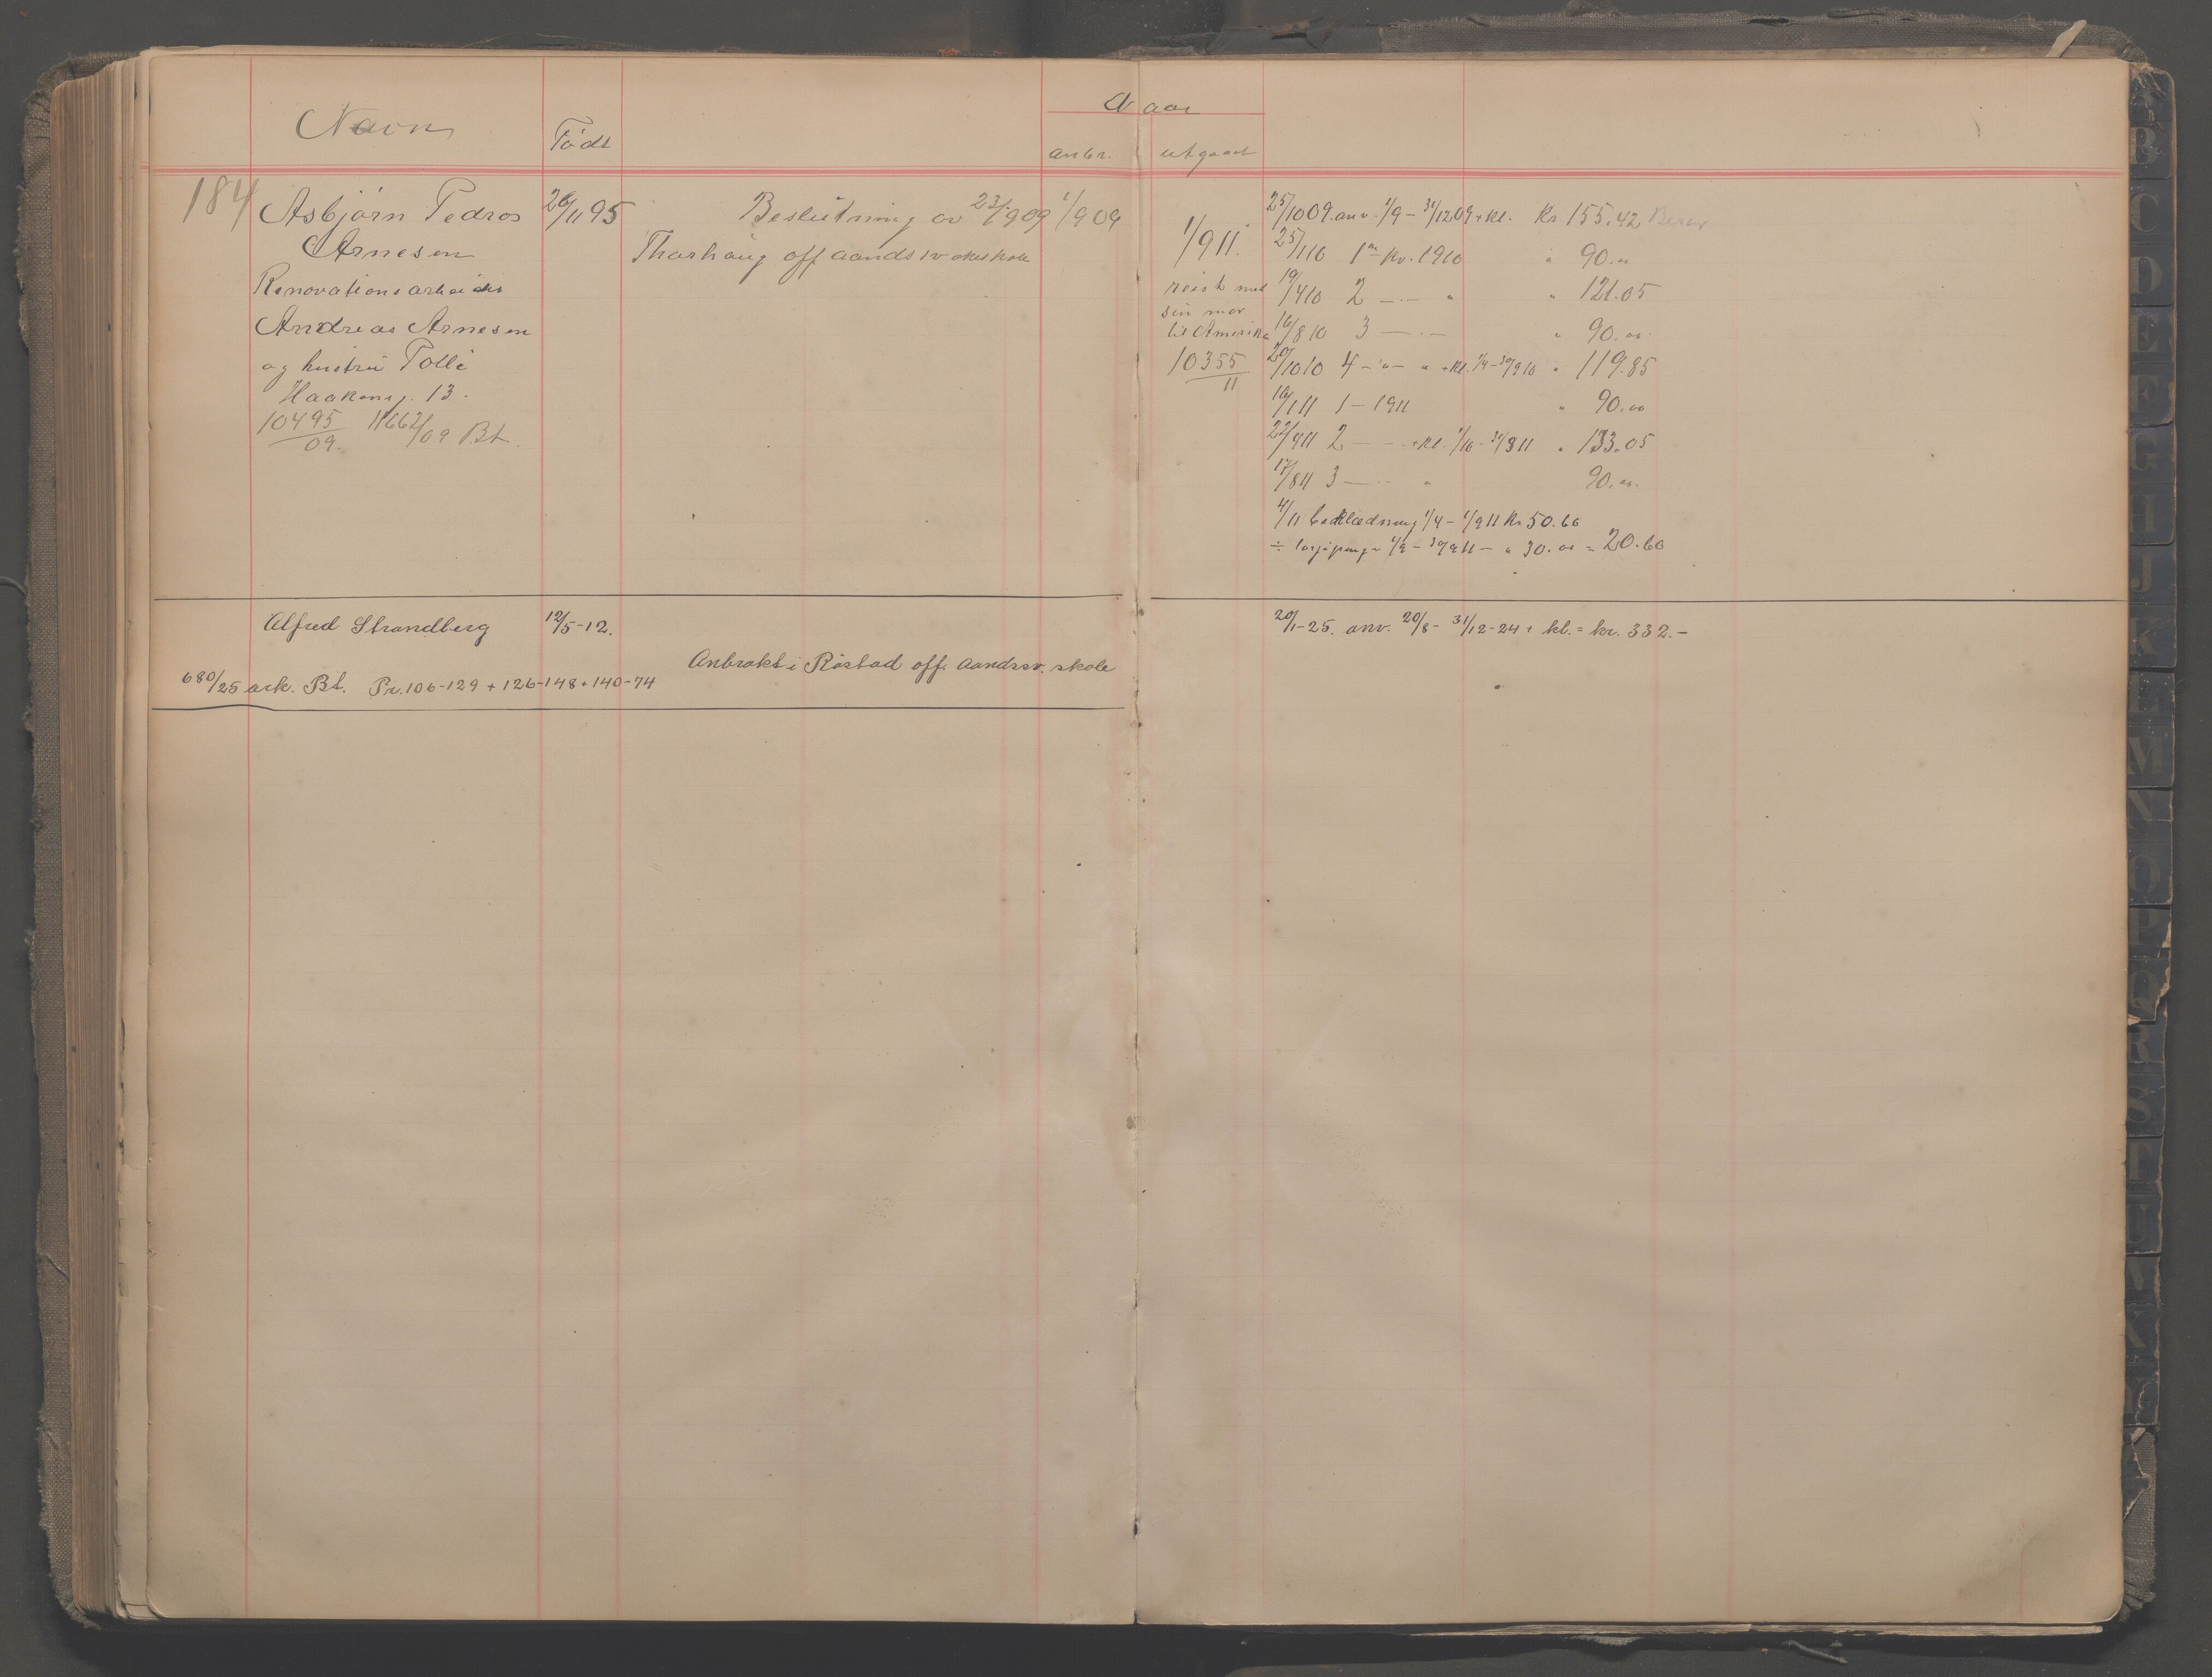 Navn
Født
Naar
anbr.
utgaaet
184
Asbjørn Pedros
Arnesen
Renovationsarbeider
Andreas Arnesen
og hustru Polli
Haakonsg. 13.
10495/09. 11662/09 Bt.
26/11 95
Beslutning av 23/9 09
Thorhaug off aandssvakeskole
1/9 09
1/9 11.
reist med
sin mor
til Amerika
10355/11
25/10 09. anv. 1/9 - 31/12 09 + kl. Kr 155.42
25/1 10 1ste kv. 1910 " 90.00
19/4 10 2 — . — " " 121.05
16/8 10 3 — . — " 90.00
20/10 10 4 — " — " + kl. 1/4 - 30/9 10 " 119.85
16/1 11 1 — 1911 " 90.00
22/4 11 2 — - + kl. 1/10 - 31/3 11 " 133.05
17/8 11 3 — " 90.00.
4/11 beklædning 1/4 - 1/9 11 Kr 50.60
÷ 1/9 - 30/9 11 — " 30.00 = 20.60
Alfred Strandberg
12/5-12.
Anbrakt i Røstad off. aandssv. skole
680/25 ark. Bt. Pr. 106-129 + 126-148 + 140-74
20/1-25. anv. 20/8 - 31/12-24 + kl. = kr. 332.-
B
C
D
E
F
G
H
J
K
L
M
N
O
P
Q
R
S
T
U
V
X
Y